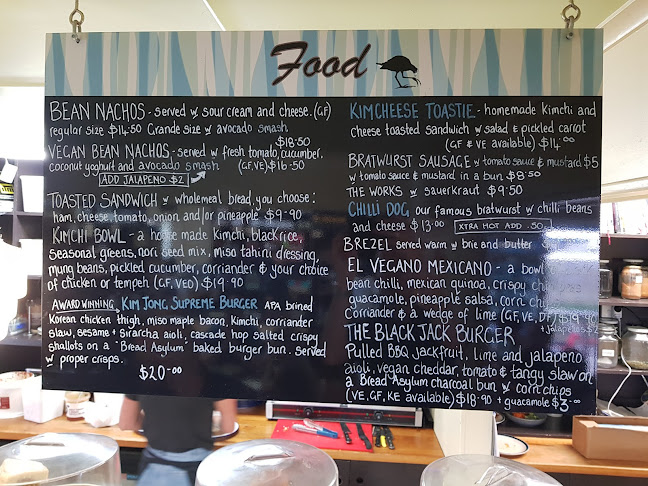 Food
BEAN NACHOS - served w sour cream and cheese. (GF)
regular size $14.50 Grande size w avocado smash
$18.50
VEGAN BEAN NACHOS - served w fresh tomato, cucumber,
coconut yoghurt and avocado smash (GF, VE) $16.50
ADD JALAPENO $2
TOASTED SANDWICH w wholemeal bread, you choose:
ham, cheese, tomato, onion and/or pineapple $9.90
KIMCHI BOWL - a home made kimchi, black rice,
seasonal greens, nori seed mix, miso tahini dressing,
mung beans, pickled cucumber, corriander & your choice
of chicken or tempeh (GF, VEO) $19.90
AWARD WINNING KIM JONG SUPREME BURGER APA brined
Korean chicken thigh, miso maple bacon, Kimchi, corriander
slaw, sesame + Siracha aioli, cascade hop salted crispy
shallots on a "Bread Asylum" baked burger bun. Served
w proper crisps.
$20.00
KIMCHEESE TOASTIE - homemade kimchi and
cheese toasted sandwich w salad & pickled carrot
(GF & VE available) $14.00
BRATWURST SAUSAGE w tomato sauce & mustard $5
w tomato sauce & mustard in a bun $8.50
THE WORKS w sauerkraut $9.50
CHILLI DOG, our famous bratwurst w chilli beans
and cheese $13.00 XTRA HOT ADD .50
BREZEL served warm w brie and butter
EL VEGANO MEXICANO - a bowl
bean chilli, mexican quinoa, crispy
guacamole, pineapple salsa, corn chips
Corriander & a wedge of lime (GF, VE, DF) $19.90
+ Jalapenos $2
THE BLACK JACK BURGER
Pulled BBQ jackfruit, lime and jalapeno
aioli, vegan cheddar, tomato & tangy slaw on
a Bread Asylum charcoal bun w corn chips
(VE, GF, KE available) $18.90 + guacamole $3.00